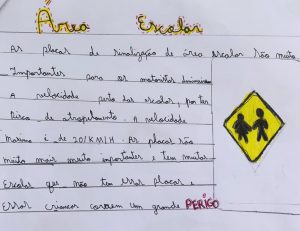 Área Escolar
As placas de sinalização de área escolar são muito
Importantes para os motoristas diminuirem
A velocidade perto das escolas, por ter
Risco de atropelamento. A velocidade
maxima é de 20/KM/H. As placas são
muito mais muito importantes e tem muitas
Escolas que não tem essas placas e
Essas crianças correm um grande PERIGO